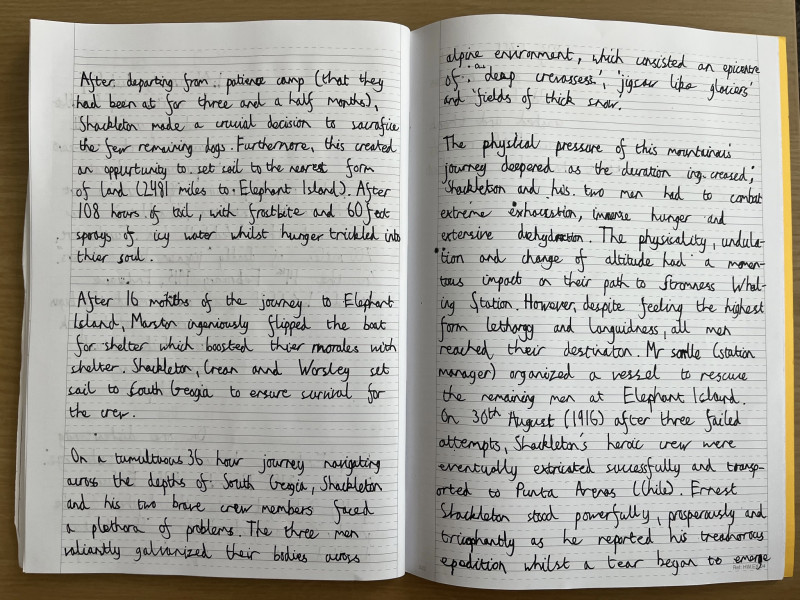 After departing from patience camp (that they
had been at for three and a half months),
Shackleton made a crucial decision to sacrafice
the few remaining dogs. Furthermore, this created
an oppurtunity to set sail to the nearest form
of land (2481 miles to Elephant Island). After
108 hours of toil, with frostbite and 60 feet
sprays of icy water whilst hunger trickled into
thier soul.
After 16 months of the journey to Elephant
Island, Marston ingeniously flipped the boat
for shelter which boosted thier morales with
shelter. Shackleton, Crean and Worsley set
sail to South Geogia to ensure survival for
the crew.
On a tumultuous 36 hour journey navigating
across the depths of South Geogia, Shackleton
and his two brave crew members faced
a plethora of problems. The three men
valiantly galvanized their bodies across
alpine environment, which consisted an epicentre
of 'deep crevasses', 'jigsaw like glaciers'
and 'fields of thick snow.
The physical pressure of this mountainous
journey deepened as the duration increased;
Shackleton and his two men had to combat
extreme exhaustion, immense hunger and
extensive The physicality, undula-
tion and change of altitude had a momen-
tous impact on their path to Stromness Whal-
ing Station. However, despite feeling the highest
form lethargy and languidness, all men
reached their destination. Mr (station
manager) organized a vessel to rescue
the remaining men at Elephant Island.
On 30th August (1916) after three failed
attempts, Shackleton's heroic crew were
eventually extricated successfully and transp-
orted to Punta Arenas (Chile). Ernest
Shackleton stood powerfully, prosperously and
as he reported his treachorous
expedition whilst a tear began to emerge